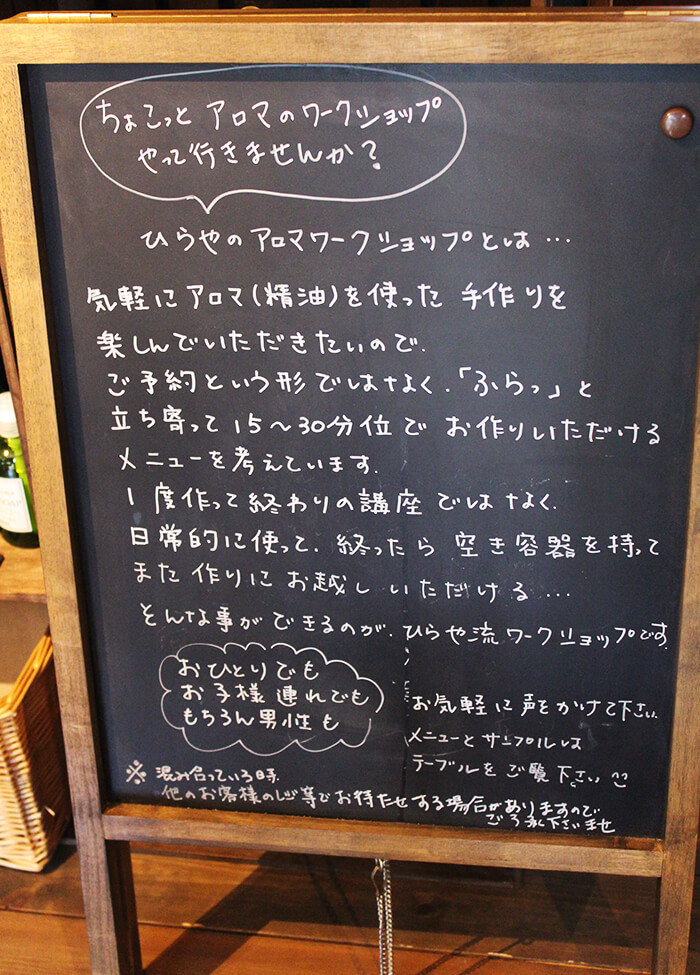 ちょこっと アロマのワークショップ
やって行きませんか?
ひらやのアロマワークショップとは…
気軽にアロマ(精油)を使った 手作りを
楽しんでいただきたいので、
ご予約という形ではなく、「ふらっ」と
立ち寄って 15〜30分位で お作りいただける
メニューを考えています。
1度作って終わりの講座ではなく、
日常的に使って、終ったら 空き容器を持って
また作りにお越しいただける…
そんな事ができるのが、ひらや流ワークショップです。
おひとりでも
お子様連れでも
もちろん男性も
お気軽に声をかけて下さい。
メニューとサンプルは
テーブルをご覧下さい
※ 混み合っている時、
他のお客様のレジ等でお待たせする場合がありますので
ご了承下さいませ